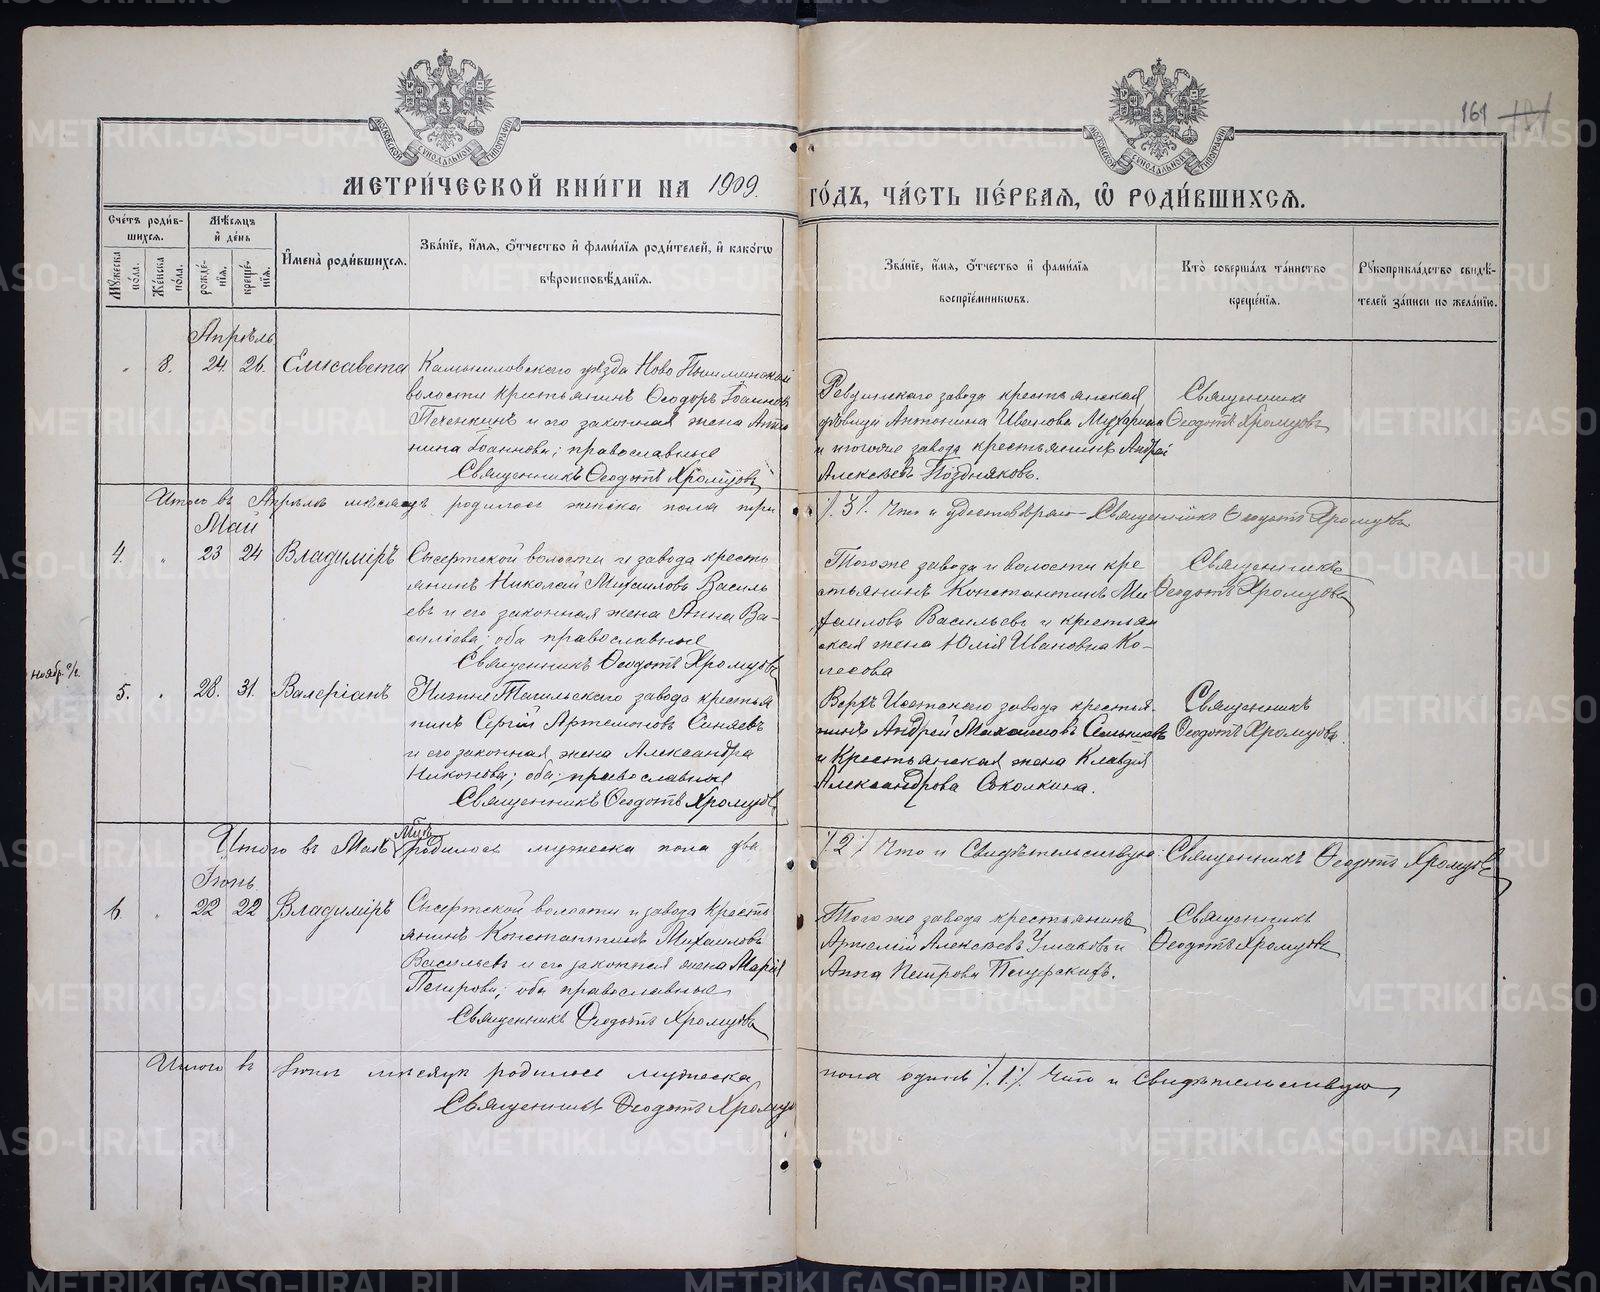 161
МОСКОВСКОЙ СѴНОДАЛЬНОЙ ТИПОГРАФІИ
МОСКОВСКОЙ СѴНОДАЛЬНОЙ ТИПОГРАФІИ
МЕТРИ́ЧЕСКОЙ КНИ́ГИ НА 1909. ГО́ДЪ, ЧА́СТЬ ПЕ́РВАѦ, Ѡ РОДИ́ВШИХСѦ.
Сче́тъ роди́в-
шихсѧ.
Мꙋжеска по́ла.
Же́нска по́ла.
Мѣ́сѧцъ
и҆ де́нь
рожде́-
нїѧ.
креще́-
нїѧ.
И҆мена̀ роди́вшихсѧ.
Зва́нїе, и҆́мѧ, ѻ҆́тчество и҆ фами́лїѧ роди́телей, и҆ како́гѡ
вѣроисповѣ́данїѧ.
Зва́нїе, и҆́мѧ, ѻ҆́тчество и҆ фами́лїѧ
воспрїе́мникѡвъ.
Кто̀ соверша́лъ та́инство
креще́нїѧ.
Рꙋкоприкла́дство свидѣ́-
телей за́писи по жела́нїю.
Апрѣль
„ 8. 24 26. Елисавета
Камышловскаго уѣзда Ново Пышминской
волости крестьянинъ Ѳеодоръ Іоаннов
Печенкинъ и его законная жена Анто
нина Іоаннова; православные
Священникъ Ѳеодотъ Хромцовъ
Ревдинскаго завода крестьянская
дѣвица Антонина Иванова Мухарина
и того же завода крестьянинъ Андрей
Алексѣевъ Поздняковъ.
Священникъ
Ѳеодотъ Хромцовъ
Итого въ Апрѣлѣ мѣсяцѣ родилось женска пола три /.3/. Что и удостовѣряю Священникъ Ѳеодотъ Хромцовъ
Май
4. „ 23 24 Владиміръ
Сысертской волости и завода кресть
янинъ Николай Михаиловъ Василь
евъ и его законная жена Анна Ва-
силіева; оба православные
Священникъ Ѳеодотъ Хромцовъ
Того же завода и волости кре
стьянинъ Константинъ Ми
хаиловъ Васильевъ и крестьян
ская жена Юлія Ивановна Ко-
лесова
Священникъ
Ѳеодотъ Хромцовъ
5. „ 28. 31. Валеріанъ
Нижне Тагильскаго завода крестья
нинъ Сергій Артемоновъ Синяевъ
и его законная жена Александра
Никонова; оба православные
Священникъ Ѳеодотъ Хромцовъ
Верхъ Исетскаго завода крестья-
нинъ Андрей
и Крестьянская жена Клавдія
Александрова Соколкина.
Священникъ
Ѳеодотъ Хромцовъ
Итого въ Маѣ Мцѣ родилось мужеска пола два /.2/. Что и Свидѣтельствую: Священникъ Ѳеодотъ Хромцовъ
Іюнь
6. „ 22 22 Владиміръ
Сысертской волости и завода Кресть
янинъ Константинъ Михаиловъ
Васильевъ и его законная жена Марія
Петрова; оба православные
Священникъ Ѳеодотъ Хромцовъ
Того же завода крестьянинъ
Артемій Алексѣевъ и
Анна Петрова
Священникъ
Ѳеодотъ Хромцовъ
Итого въ Іюнѣ мѣсяцѣ родилось мужеска пола одинъ /.1/. Что и Свидѣтельствую
Священникъ Ѳеодотъ Хромцовъ
METRIKI.GASO-URAL.RU